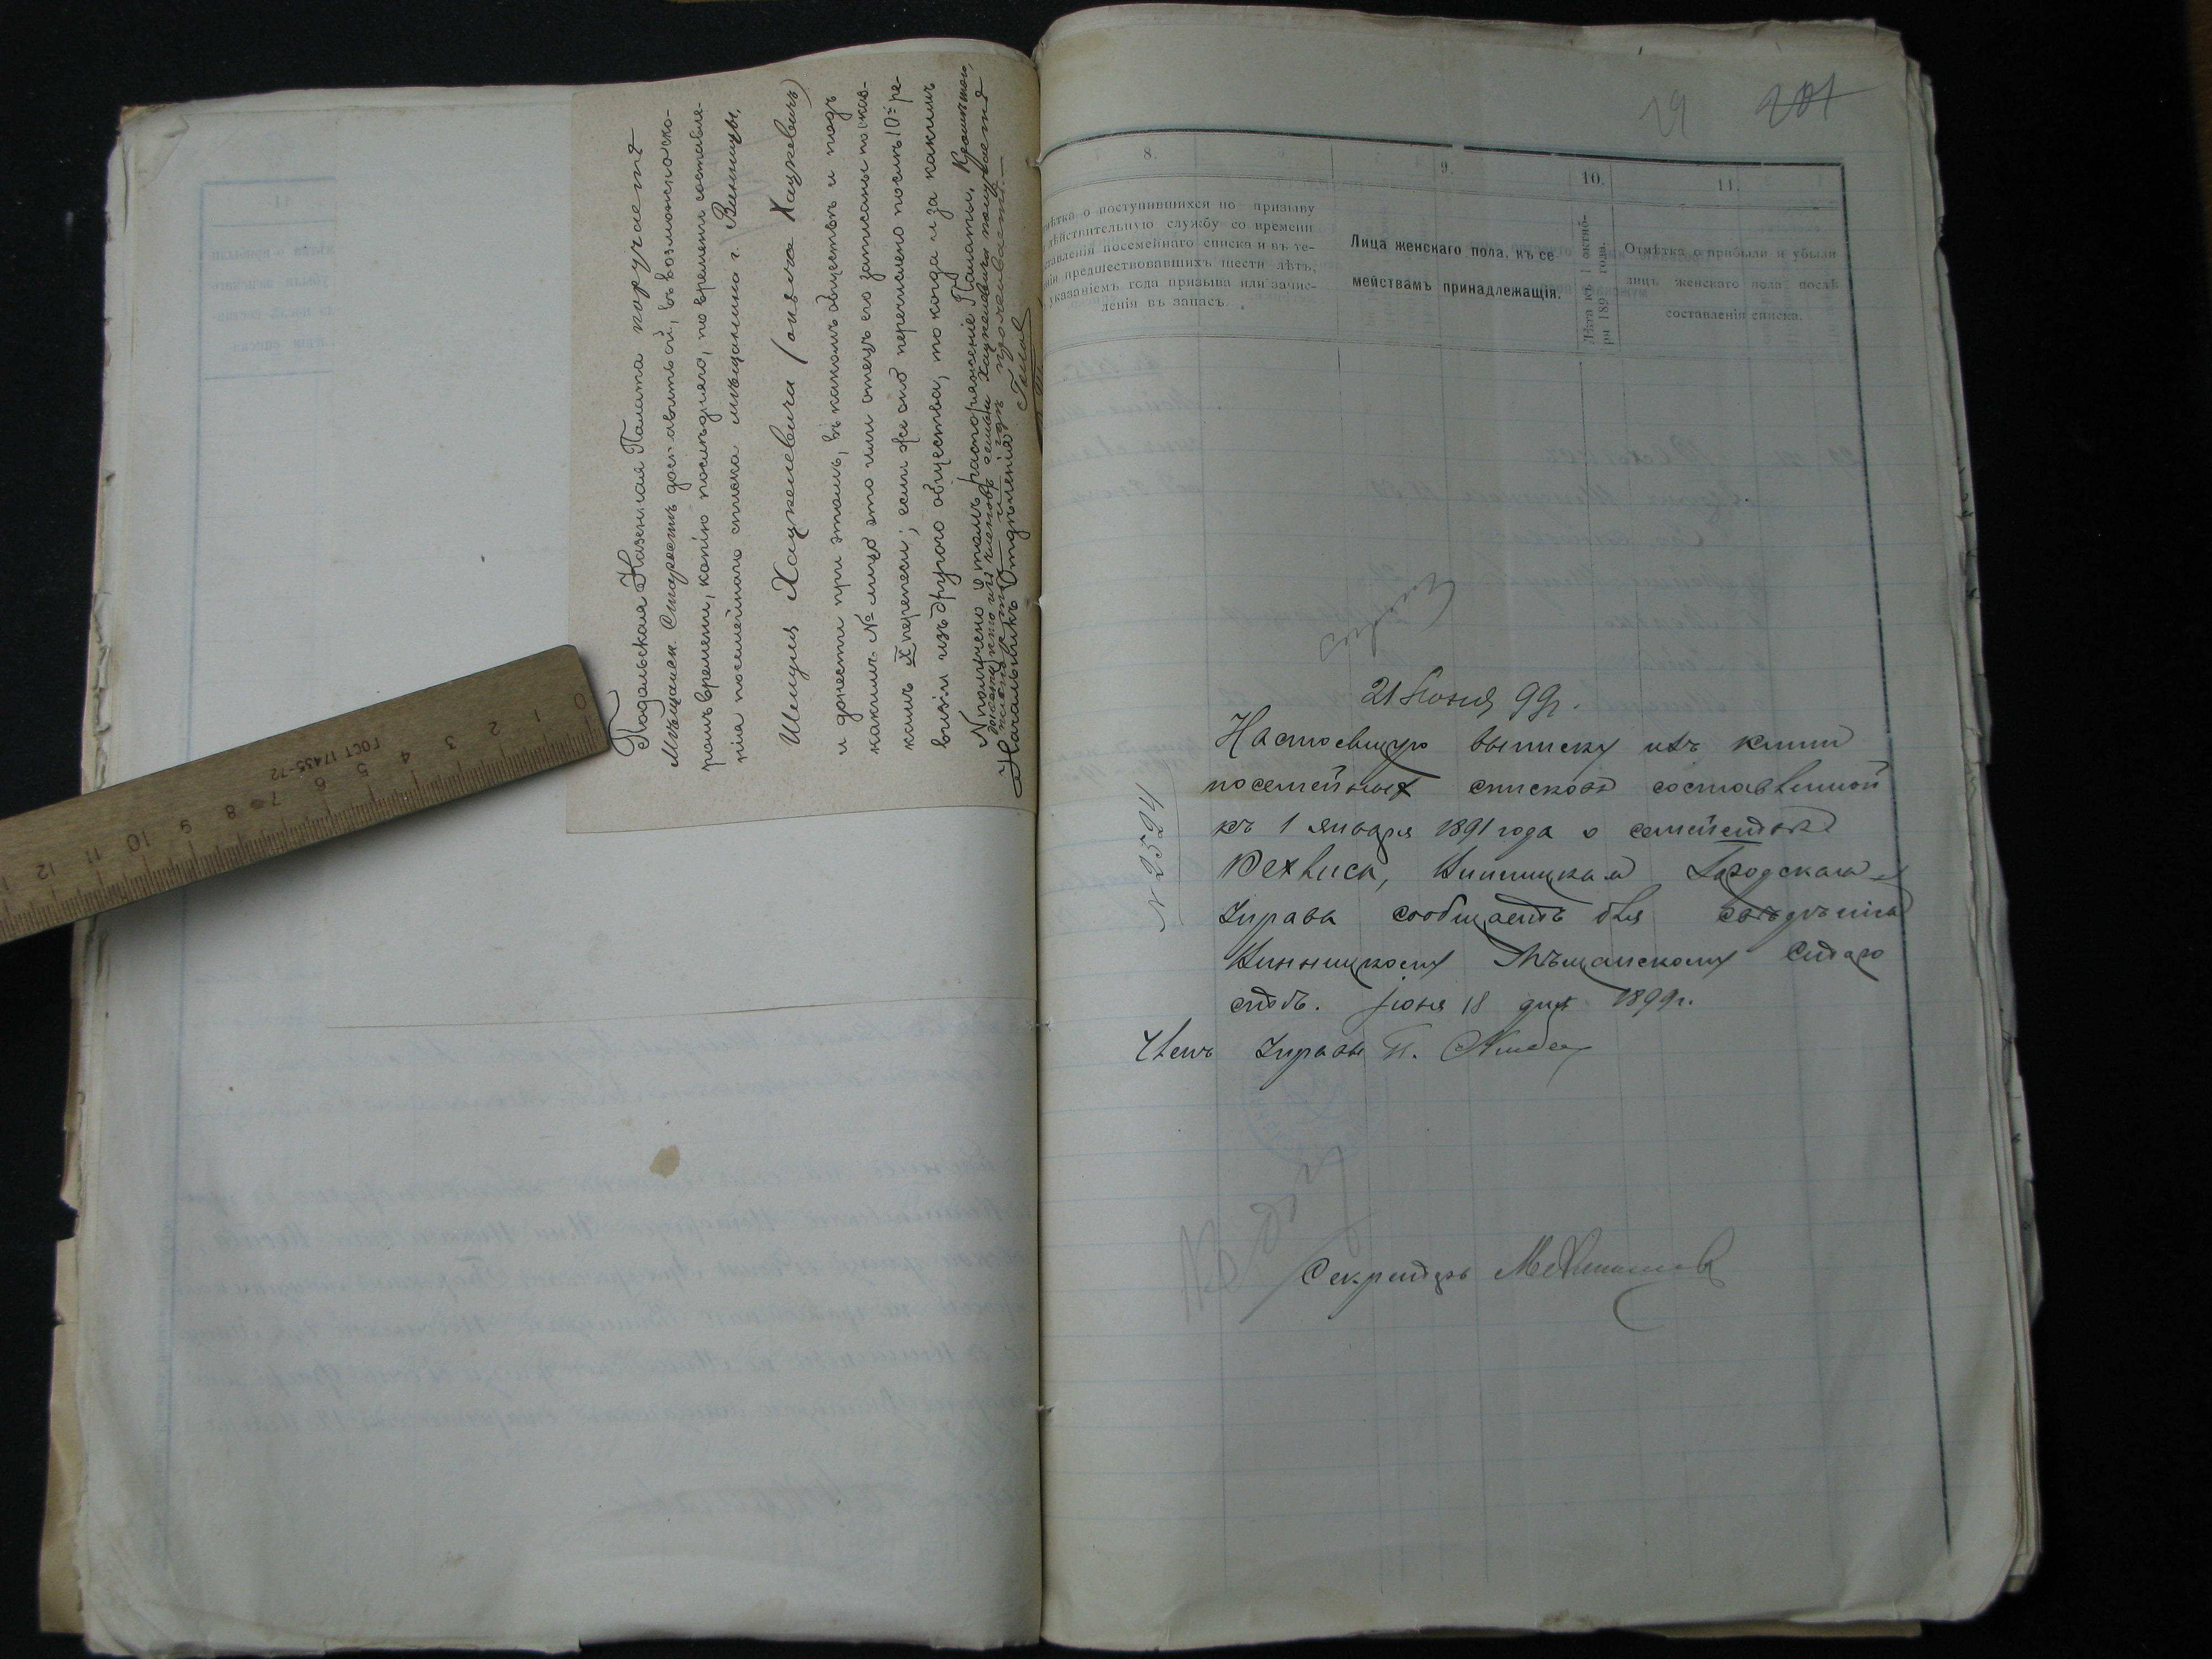 Подольская Казенная Палата поручаетъ
Мѣщанск. Старостѣ доставить ей, въ возможно ско-
ромъ времени, копію послѣдняго, по времени составле-
нія посемейнаго списка мѣщанина г. Винницы,
Шенция Хацкелевича (онъ-же Хацкевичъ)
и донести при этомъ, въ какомъ обществѣ и подъ
какимъ № лицо это или отецъ его записаны по сказ-
камъ X переписи; если же оно перечислено послѣ 10-й ре-
визіи изъ другого общества, то когда и за какимъ
№ получено о томъ распоряженіе Палаты. Кромѣ того,
донести кто изъ членовъ семьи Хацкелевича пользуется
и гдѣ проживаетъ.—
Начальникъ Отдѣленія
0 1 2 3 4 5 6 7 8 9 10 11 12
ГОСТ 17435-72
29 201
8. 9. 10. 11.
мѣтка о поступившихся по призыву
дѣйствительную службу со времени
ставленія посемейнаго списка и въ те-
ніи предшествовавшихъ шести лѣтъ,
указаніемъ года призыва или зачис-
ленія въ запасъ.
Лица женскаго пола, къ се
мействамъ принадлежащія.
Лѣта къ 1 октяб-
ря 189 года.
Отмѣтка о прибыли и убыли
лицъ женскаго пола послѣ
составленія списка.
21 Іюня 99г.
№ 2594
Настоящую выписку изъ книги
посемейныхъ списковъ составленной
къ 1 января 1891 года о семействѣ
Винницкая Городская
Управа сообщаетъ для свѣдѣнія
Винницкому Мѣщанскому Старо
стѣ. Іюня 18 дня 1899г.
Членъ Управы П.
Секретарь